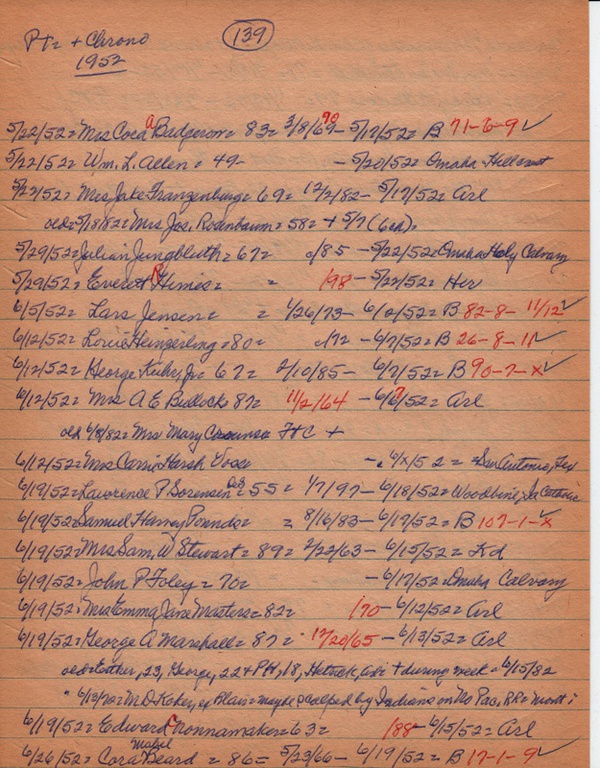 PTr + Chrono 139
1952
5/22/52= Mrs Cora A Badgerow= 83= 3/8/69 70 - 5/17/52= B 71-6-9 ✓
5/22/52= Wm. L. Allen = 49- - 5/20/52= Omaha Hillcrest
5/22/52= Mrs Jake Franzenburg= 69= 12/2/82- 5/17/52= Arl
old= 5/18/82= Mrs Jos. Rosenbaum= 58= + 5/7
5/29/52= Julian Jungbluth= 67= /85 -5/22/52= Omaha Holy Calvary
5/29/52= Everett R Himes= = /98 -5/22/52= Her
6/5/52= Lars Jensen= = 4/26/73- 6/2/52= B 82-8- 11/12 ✓
6/12/52= Heingerling =80= /72 - 6/7/52= B 26-8-11 ✓
6/12/52= George Kuhr, Jr= 67= 2/10/85- 6/7/52= B 90-7-x ✓
6/12/52= Mrs A E Bullock 87= 11/2/64 -6/6/52= Arl 7
old 6/8/82= Mrs Mary FtC +
6/12/52= Mrs Carrie Harsh Vose - 6/x/52 = =San Antonio, Tex
6/19/52= Lawrence P Sorensen 55= 1/7/97- 6/18/52= Woodbine, Ia Catholic
6/19/52= Samuel Harvey Pounds= = 8/16/83- 6/17/52= B 107-1-x ✓
6/19/52= Mrs Sam. W Stewart= 89= 2/22/63- 6/15/52= Kd
6/19/52= John P Foley= 70= -6/17/52= Omaha Calvary
6/19/52= Mrs Emma Jane Masters= 82= /70 -6/12/52= Arl
6/19/52= George A Marshall= 87= 12/20/65 -6/13/52= Arl
old= Esther, 23, George, 22 + PH, 18, + during week = 6/15/82
" 6/13/70= M D Koker, ex Blair= maybe scalped by Indians on No Pac, RR= mont;
6/19/52= Edward C Nonnamaker= 63= /88 -6/15/52= Arl
6/26/52= Cora Mabel Beard = 86= 5/23/66- 6/19/52= B 17-1-9 ✓